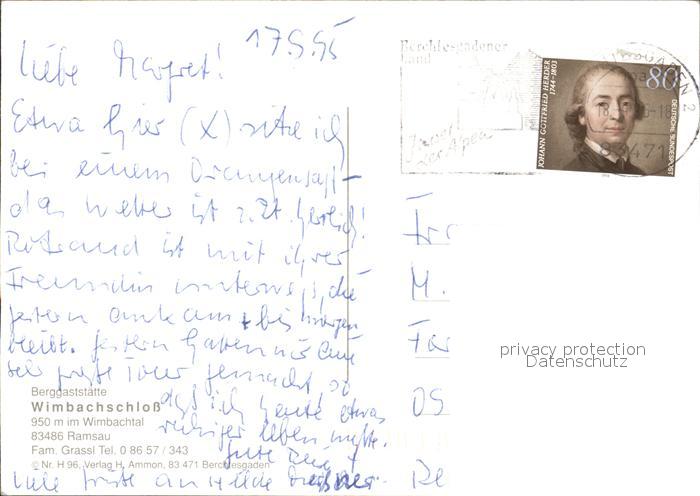 17.9.95
Liebe Margret!
Etwa hier (X) sitze ich
bei einem Orangensaft –
das Wetter ist z. Zt. herrlich!
Rotraud ist mit ihrer
Freundin unterwegs, die
gestern ankam + bis morgen
bleibt. Gestern haben wir eine
sehr große Tour gemacht, so
daß ich heute etwas
ruhiger leben mußte.
Gute
Viele Grüße an Hilde
Berggaststätte
Wimbachschloß
950 m im Wimbachtal
83486 Ramsau
Fam. Grassl Tel. 0 86 57 / 343
© Nr. H 96, Verlag H. Ammon, 83 471 Berchtesgaden
Berchtesgadener
Land
der Alpen
JOHANN GOTTFRIED HERDER
1744-1803
80
DEUTSCHE BUNDESPOST
83471
Fr
M.
OS
privacy protection
Datenschutz